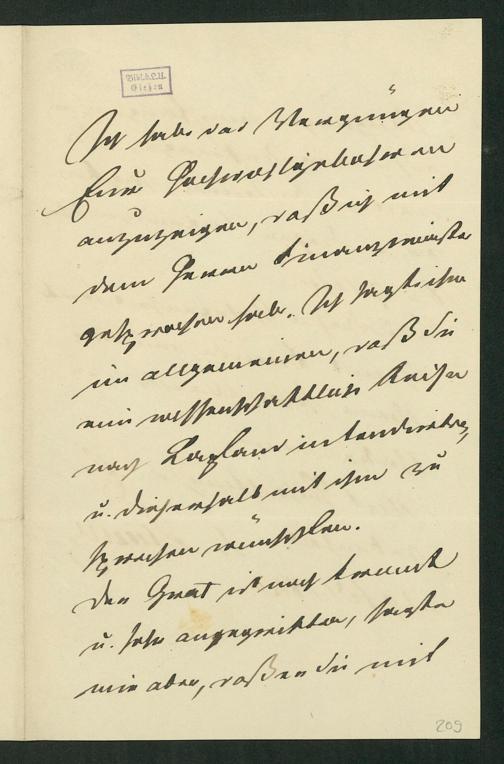 Bibl. d. L.U.
Gießen
Ich habe das Vergnügen
Euer Hochwohlgeboren
anzuzeigen, daß ich mit
dem Herrn Finanzminister
gesprochen habe. Ich sagte ihm
im allgemeinen, daß Sie
eine wissenschaftliche Reise
nach Lapland intendirten,
u. dieserhalb mit ihm zu
sprechen wünschten.
Der Graf ist noch krank
u. sehr angegriffen, sagte
mir aber, daß er Sie mit
209